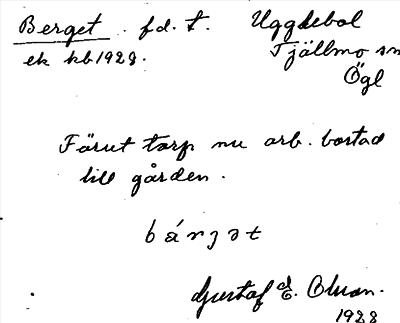 Berget. f.d. t. Uggdebol
ek kb 1928. Tjällmo sn
Ögl
Förut torp nu arb. bostad
till gården.
bárjət
Gustaf E. Olsson.
1928